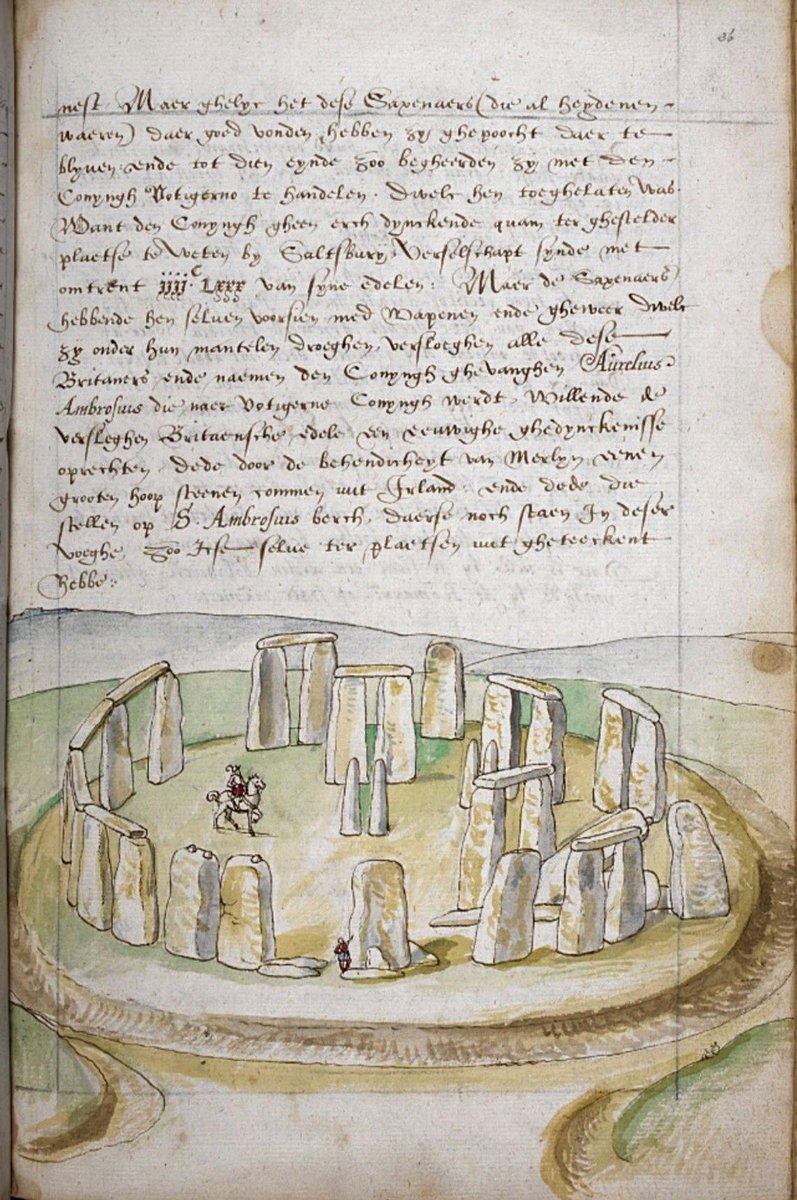 36
nest. Maer ghelyc het dese Saxenaers (die al heydenen
waeren) daer goed vonden hebben zy ghepoocht daer te
blyven, ende tot dien eynde zoo begheerden zy met den
Conyngh Votigerno te handelen. dwelc hen toeghelaten was.
Want den Conyngh gheen erch dynckende quam ter ghestelder
plaetse te weten by Saltsbury, verselschapt synde met
omtrent iiii.c Lxxx van syne edelen: Maer de Saxenaers
hebbende hen selven voorsien med wapenen ende gheweer dwelc
zy onder hun mantelen droeghen, versloeghen alle dese
Britaners ende naemen den Conyngh ghevanghen. Aurelius
Ambrosius die naer Votigerne Conyngh werdt, Willende de
versleghen Britaensche edele een eeuwighe ghedynckenisse
oprechten, dede door de behendicheyt van Merlyn eenen
grooten hoop steenen commen uut Irland, ende dede die
stellen op S. Ambrosius berch, daerse noch staen In deser
voeghe, zoo Icse selve ter plaetsen uut gheteeckent
hebbe: